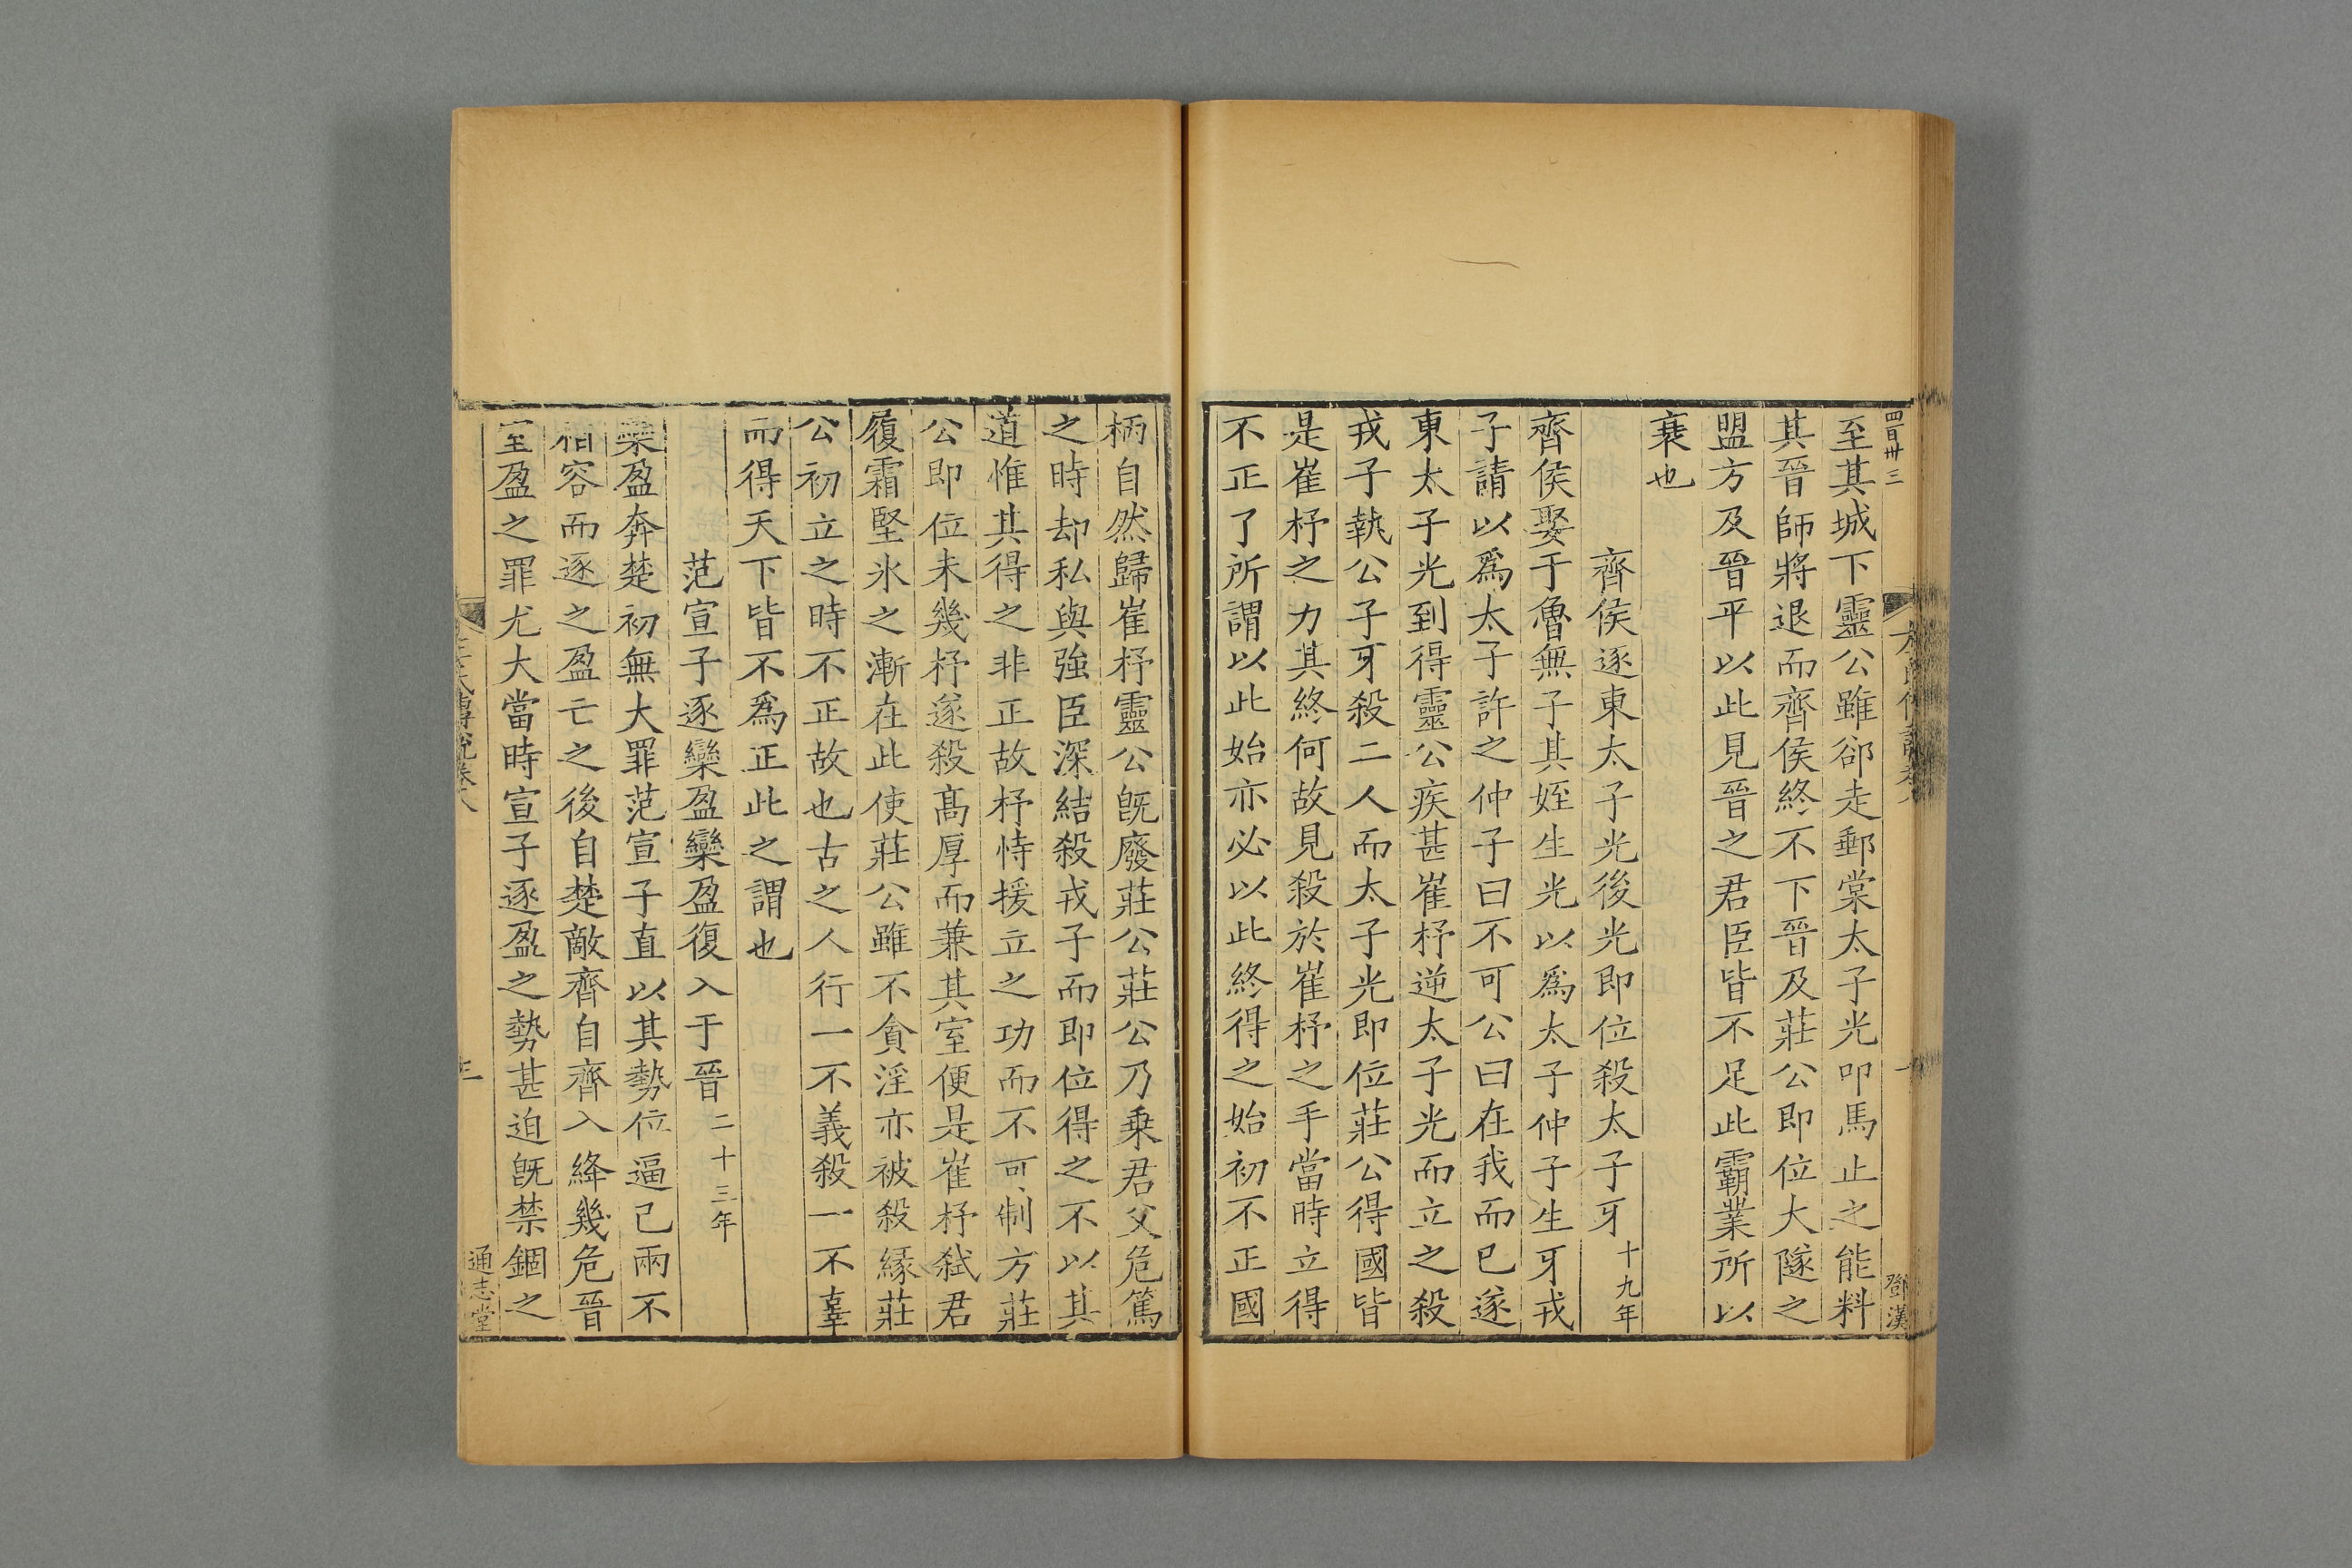 四百卅三
鄧漢
至其城下靈公雖卻走郵棠太子光叩馬止之能料
其晉師將退而齊侯終不下晉及莊公即位大隧之
盟方及晉平以此見晉之君臣皆不足此霸業所以
衰也
齊侯逐東太子光後光即位殺太子牙十九年
齊侯娶于魯無子其姪生光以爲太子仲子生牙戎
子請以爲太子許之仲子曰不可公曰在我而已遂
東太子光到得靈公疾甚崔杼逆太子光而立之殺
戎子執公子牙殺二人而太子光即位莊公得國皆
是崔杼之力其終何故見殺於崔杼之手當時立得
不正了所謂以此始亦必以此終得之始初不正國
柄自然歸崔杼靈公旣廢莊公莊公乃乗君父危篤
之時却私與強臣深結殺戎子而即位得之不以其
道惟其得之非正故杼恃援立之功而不可制方莊
公即位未幾杼遂殺髙厚而兼其室便是崔杼弑君
履霜堅氷之漸在此使莊公雖不貪淫亦被殺縁莊
公初立之時不正故也古之人行一不義殺一不辜
而得天下皆不爲正此之謂也
范宣子逐欒盈欒盈復入于晉二十三年
欒盈奔楚初無大罪范宣子直以其勢位逼己兩不
相容而逐之盈亡之後自楚敵齊自齊入絳幾危晉
室盈之罪尤大當時宣子逐盈之勢甚迫旣禁錮之
左氏傳說卷八
三
通志堂